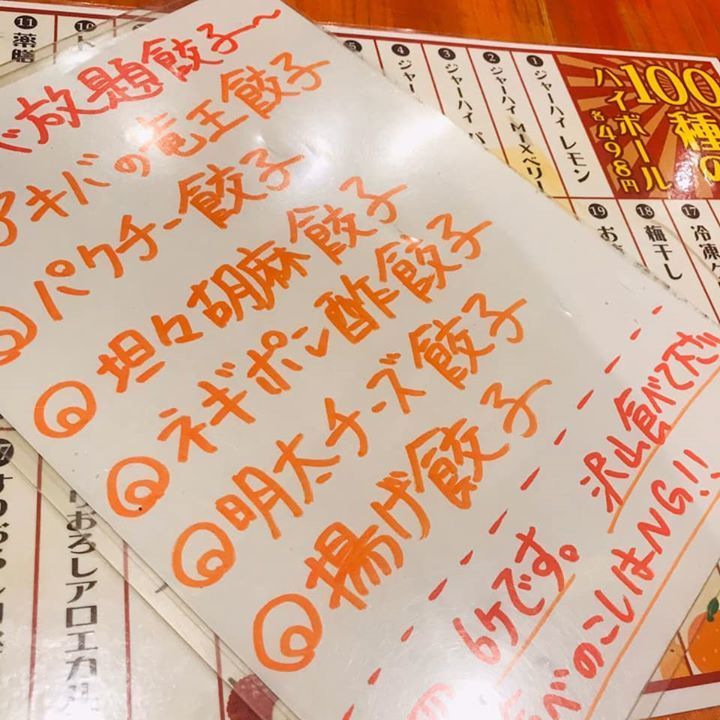 べ放題餃子～
アキバの竜王餃子
◎パクチー餃子
◎坦々胡麻餃子
◎ネギポン酢餃子
◎明太チーズ餃子
◎揚げ餃子
6ケです。沢山食べて下さ
べのこしはNG!!
100種の
ハイボール
各498円
❶ジャーハイ レモン
❷ジャーハイ MIXベリー
❸ジャーハイ パ
❹ジャーハイ
❺
⓫薬膳
❿
⓱冷凍
⓲梅干し
⓳お
りおろしアロエカル
すりおろし